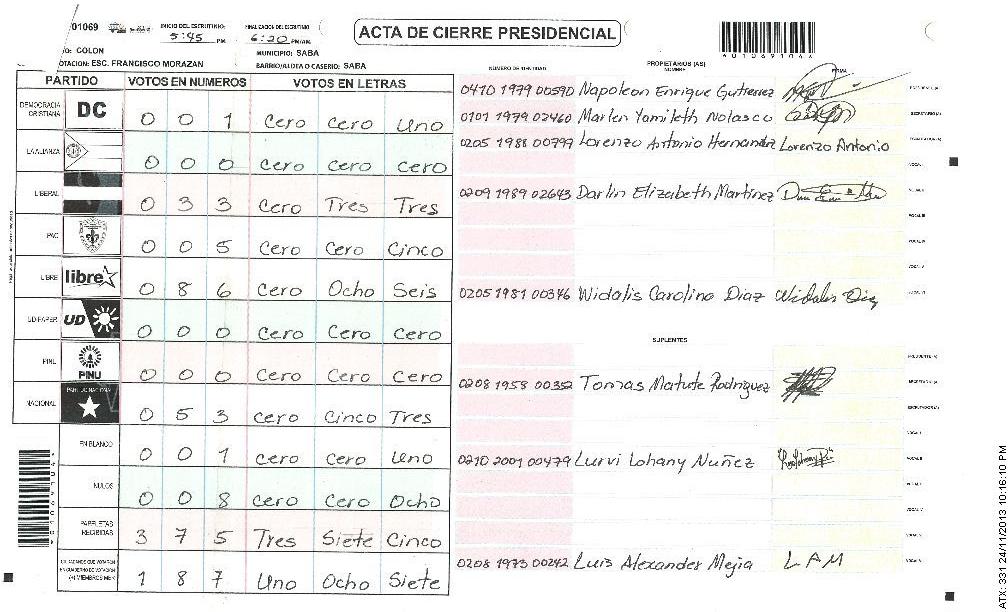 01069 INICIO DEL ESCRUTINIO: 5:45 PM FINALIZACION DEL ESCRUTINIO 6:20 PM/AM
ACTA DE CIERRE PRESIDENCIAL
COLON MUNICIPIO: SABA
ESC. FRANCISCO MORAZAN BARRIO/ALDEA O CASERIO: SABA
PARTIDO VOTOS EN NUMEROS VOTOS EN LETRAS
DEMOCRACIA CRISTIANA DC 0 0 1 Cero Cero Uno
LA ALIANZA 0 0 0 Cero Cero Cero
LIBERAL 0 3 3 Cero Tres Tres
PAC 0 0 5 Cero Cero Cinco
LIBRE libre 0 8 6 Cero Ocho Seis
UD/FAPER UD 0 0 0 Cero Cero Cero
PINU PINU 0 0 0 Cero Cero Cero
NACIONAL PARTIDO NACIONAL 0 5 3 Cero Cinco Tres
EN BLANCO 0 0 1 Cero Cero Uno
NULOS 0 0 8 Cero Cero Ocho
PAPELETAS RECIBIDAS 3 7 5 Tres Siete Cinco
CIUDADANOS QUE VOTARON EN CUADERNO DE VOTACION (+) MIEMBROS MER 1 8 7 Uno Ocho Siete
NUMERO DE IDENTIDAD PROPIETARIOS (AS) NOMBRE FIRMA
0410 1979 00590 Napoleon Enrique Gutierrez
0101 1979 02460 Marlen Yamileth Nolasco
0205 1988 00799 Lorenzo Antonio Hernandz Lorenzo Antonio
0209 1989 02643 Darlin Elizabeth Martinez
0205 1981 00346 Widalis Carolina Diaz
SUPLENTES
0208 1958 00352 Tomas Matute Rodriguez
0210 2001 00479 Lurvi Lohany Nuñez
0208 1973 00242 Luis Alexander Mejia L A M
ATX: 331 24/11/2013 10:16:10 PM